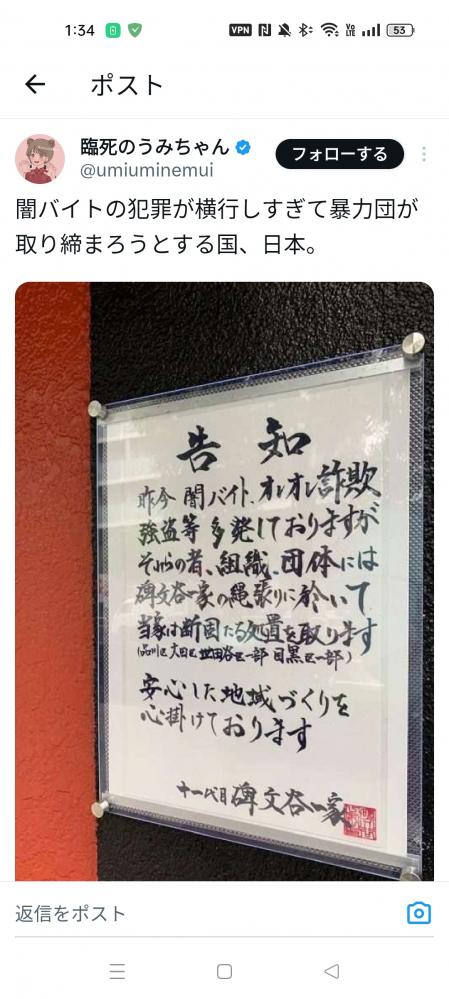 1:34
VPN
Vo
LTE
53
ポスト
臨死のうみちゃん
フォローする
@umiuminemui
闇バイトの犯罪が横行しすぎて暴力団が
取り締まろうとする国、日本。
告知
昨今 闇バイト、オレオレ詐欺
強盗等 多発しておりますが
それらの者、組織、団体には
碑文谷一家の縄張りに於いて
当家は断固たる処置を取ります
(品川区 大田区 世田谷区一部 目黒区一部)
安心した地域づくりを
心掛けております
十一代目 碑文谷一家
返信をポスト